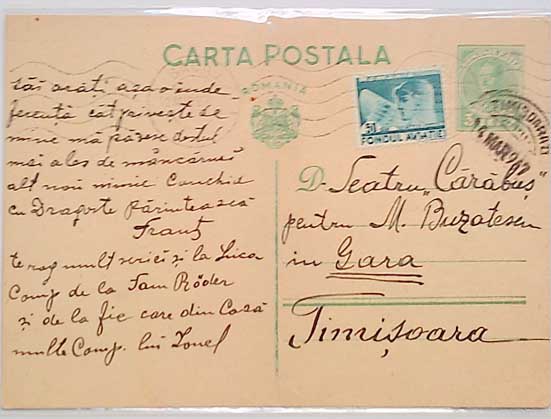 CARTA POSTALA
ROMANIA
50
FONDUL AVIAȚIEI
3
TIMIȘOARA
14 MAR 942
tăi arăți așa o inde-
ferență cât privește de
mine mă păzesc destul
mai ales de mâncăruri
alt nou nimic Conchid
cu Dragoste părintească
Franț
te rog mult scrieți și la Luca
Comp de la Fam Röder
și de la fie care din Casă
multe Comp. lui Ionel
D. Teatru „Cărăbuș"
pentru M. Buzatescu
in Gara
Timișoara